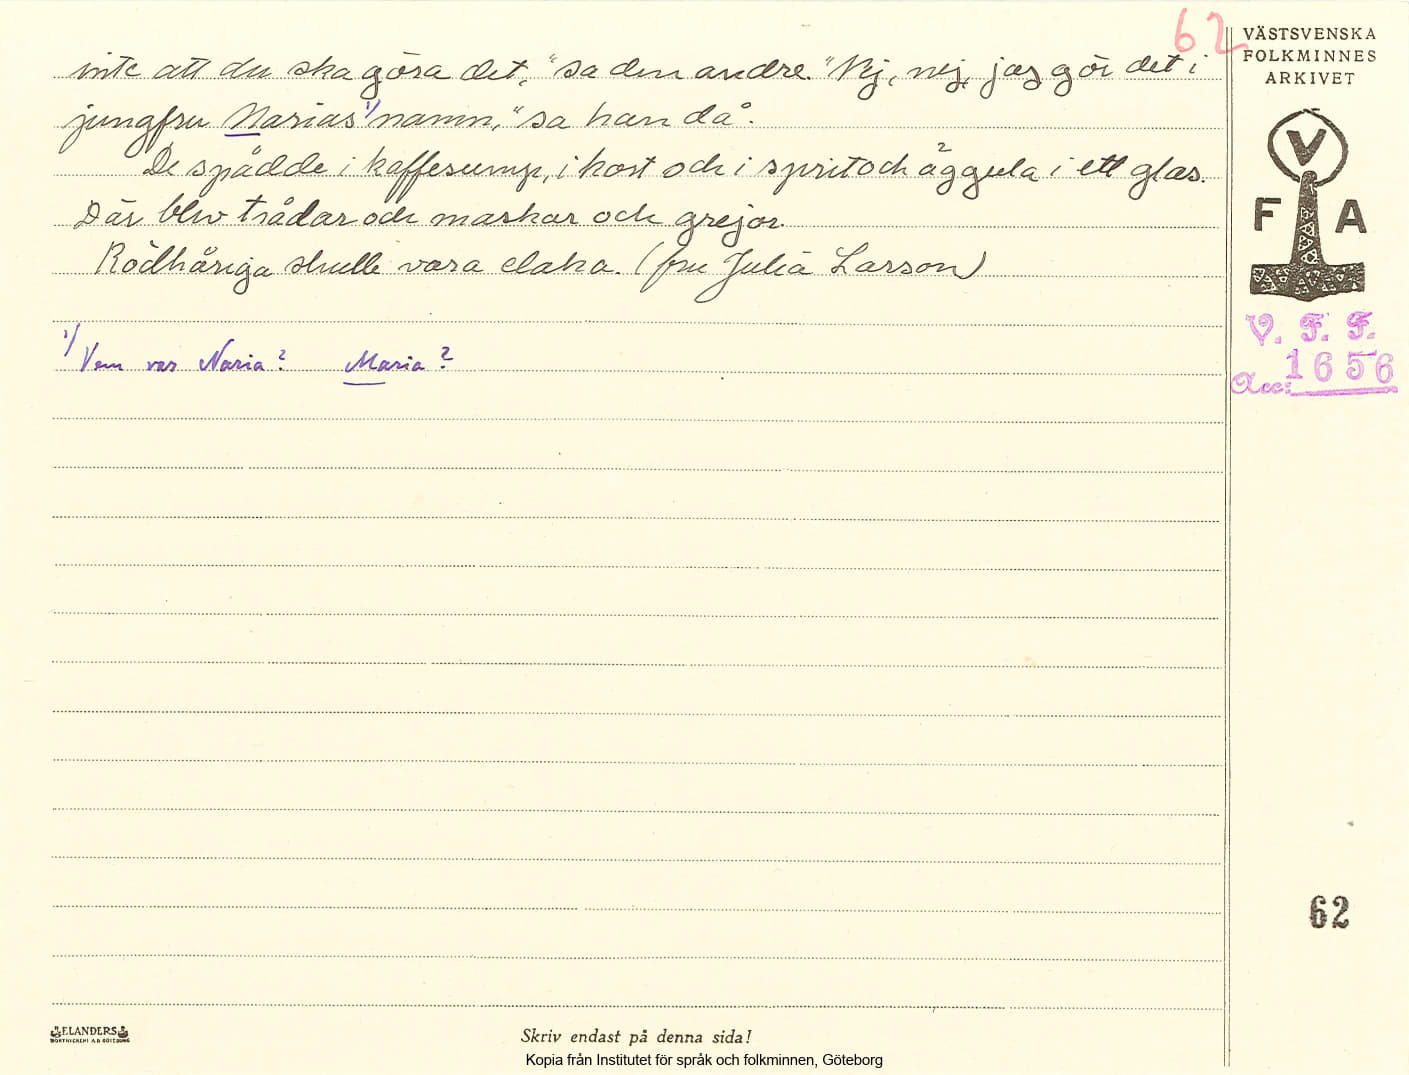 62
inte att du ska göra det," sa den andre. "Nej, nej, jag gör det i
jungfru Narias 1/ namn," sa han då.
De spådde i kaffesump, i kort och i sprit och äggula i ett glas.
Där blev trådar och maskar och grejor.
Rödhåriga skulle vara elaka. (fru Julia Larson)
1/ Vem var Naria? Maria?
VÄSTSVENSKA
FOLKMINNES
ARKIVET
V
F A
V. F. F.
Acc: 1656
62
ELANDERS
BOKTRYCKERI A.B GÖTEBORG
Skriv endast på denna sida!
Kopia från Institutet för språk och folkminnen, Göteborg